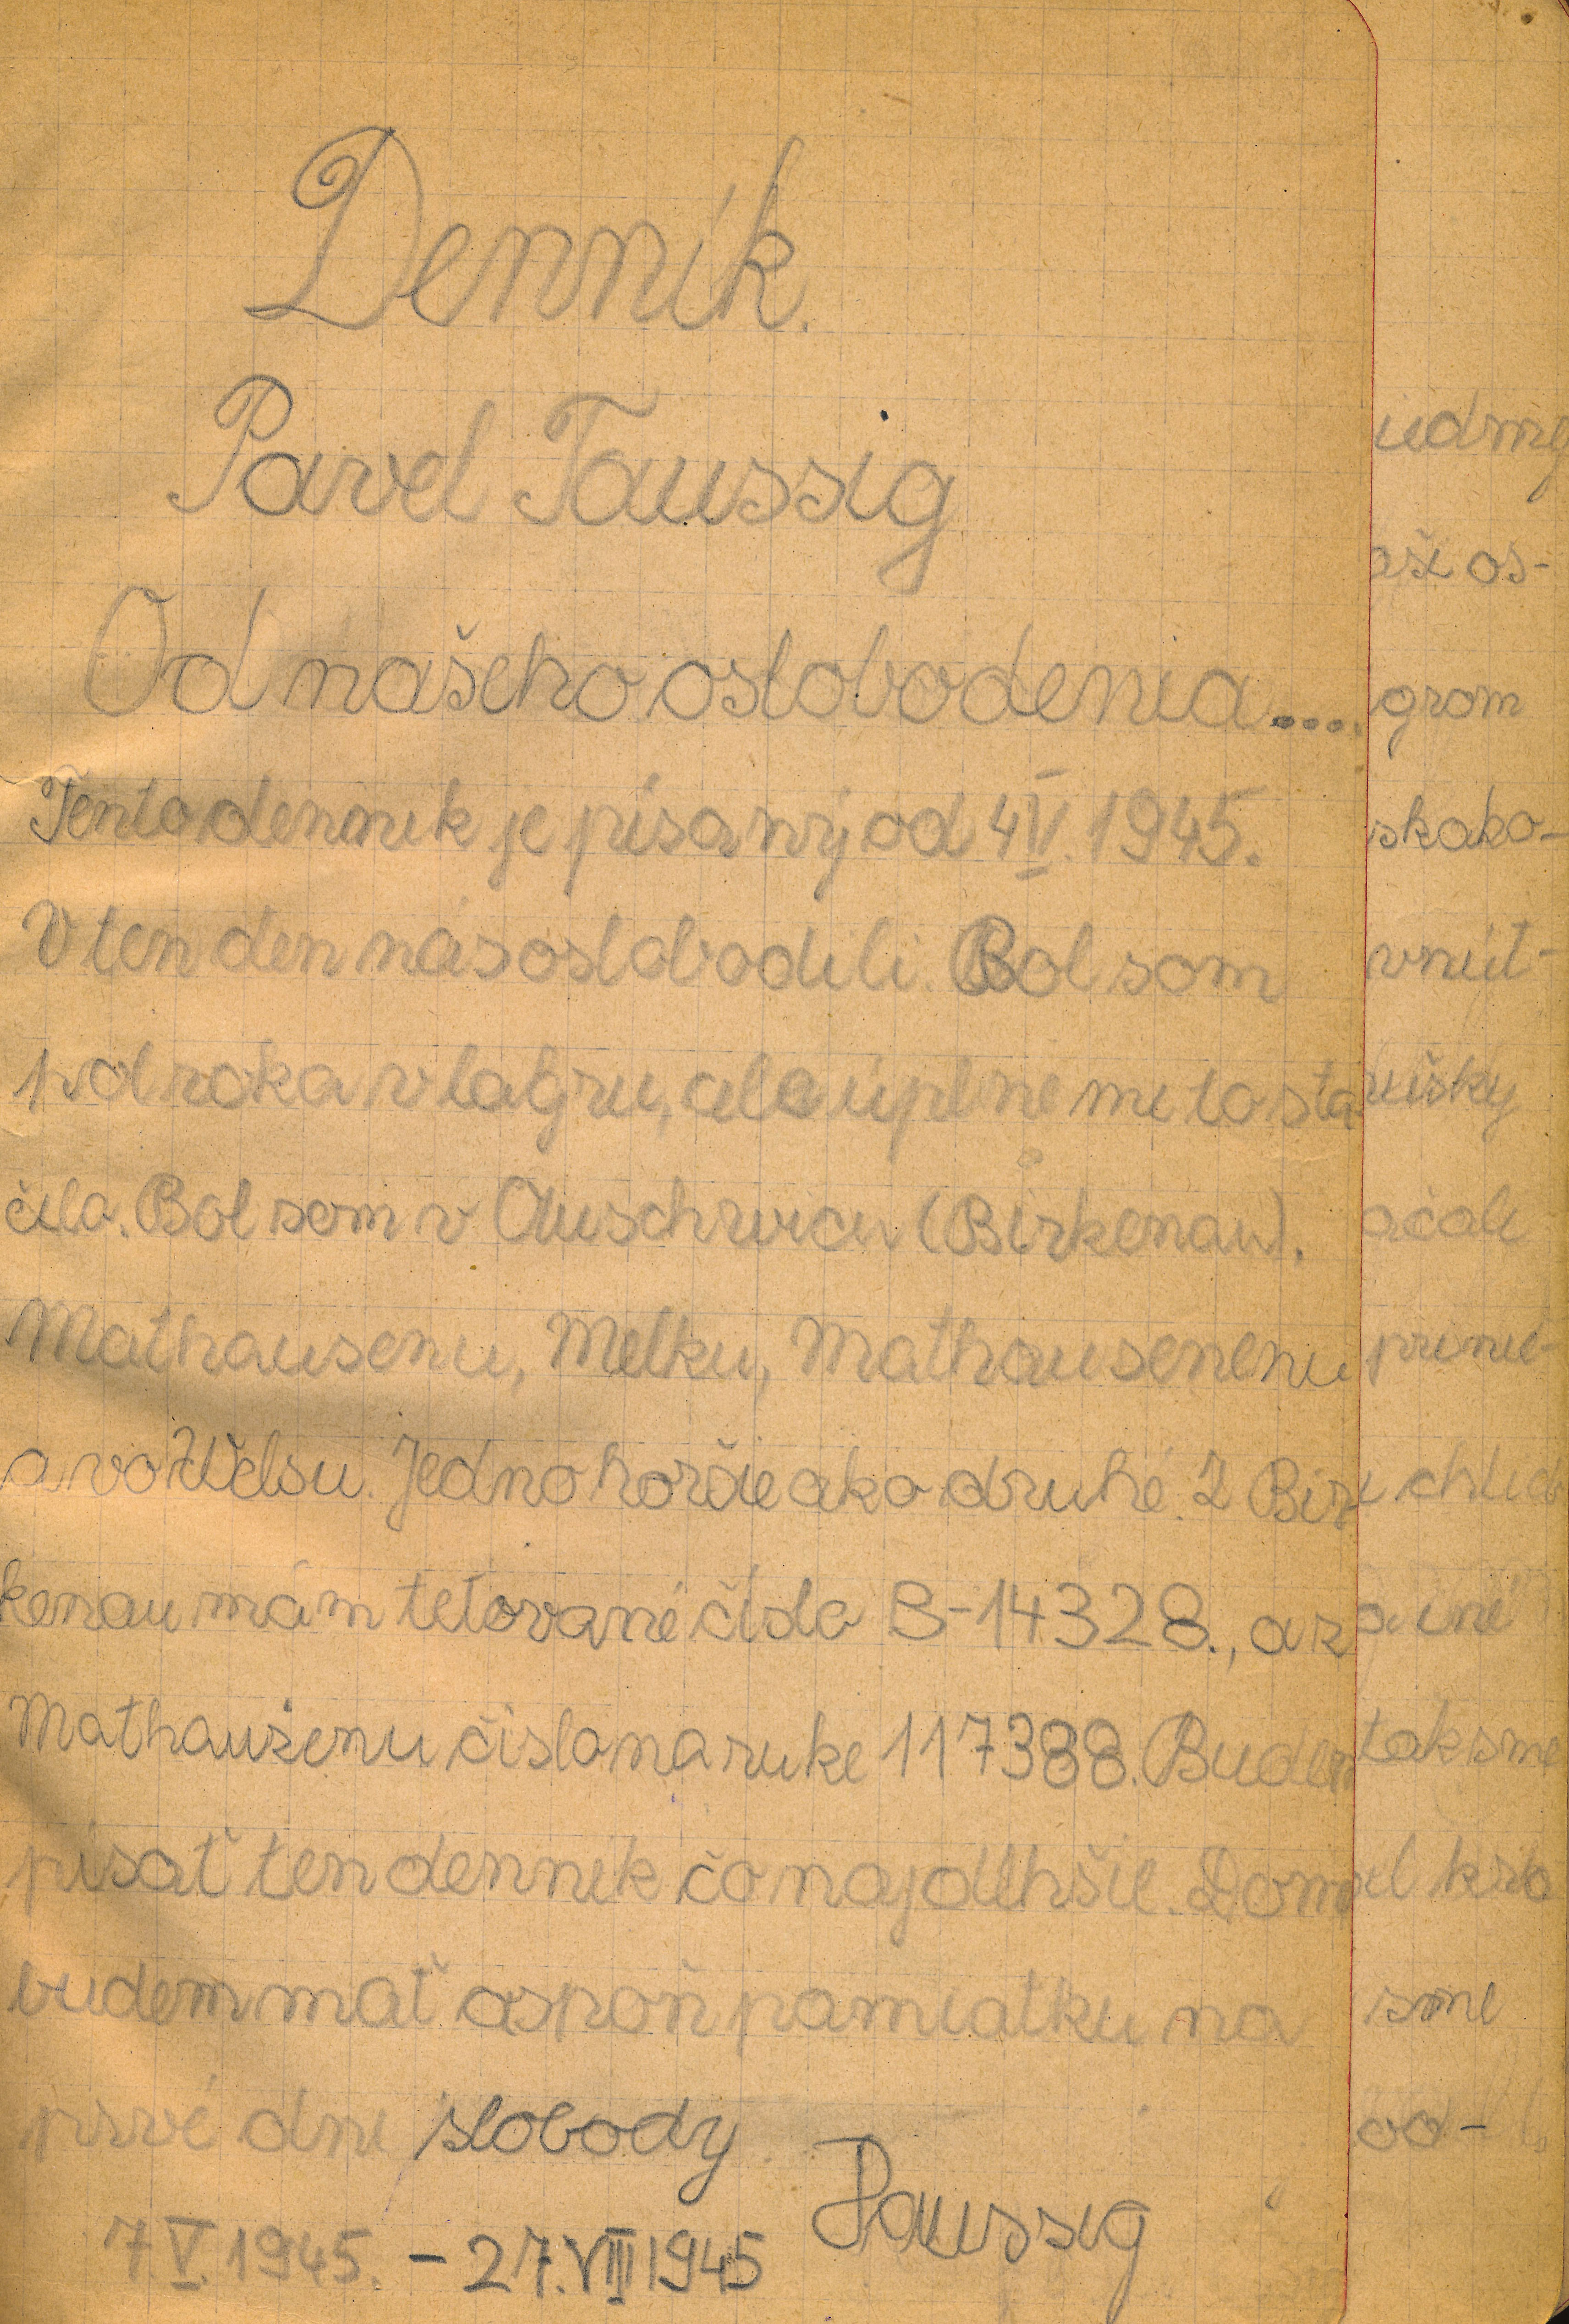 Denník.
Pavel Taussig
Od našeho oslobodenia....
Tento dennik je písaný od 4 V. 1945.
V ten den nás oslobodili. Bol som
roka v lagru, ale úplne mi to sta
čilo. Bol som v Auschwicu (Birkenau).
Mathausenu, Melku, Mathausenenu
a vo Welsu. Jedno horšie ako druhé. Z Bir
kenau mám tetované číslo B-14328., a z
Mathauzenu čislo na ruke 117388. Budem
písať ten dennik čo najdlhšie. Dom
budem mať aspoň pamiatku na
prvé dni slobody
Taussig
7.V.1945. - 27.VIII 1945
aš os-
grom
skako-
vnút-
ačali
a iné
tak sme
sme